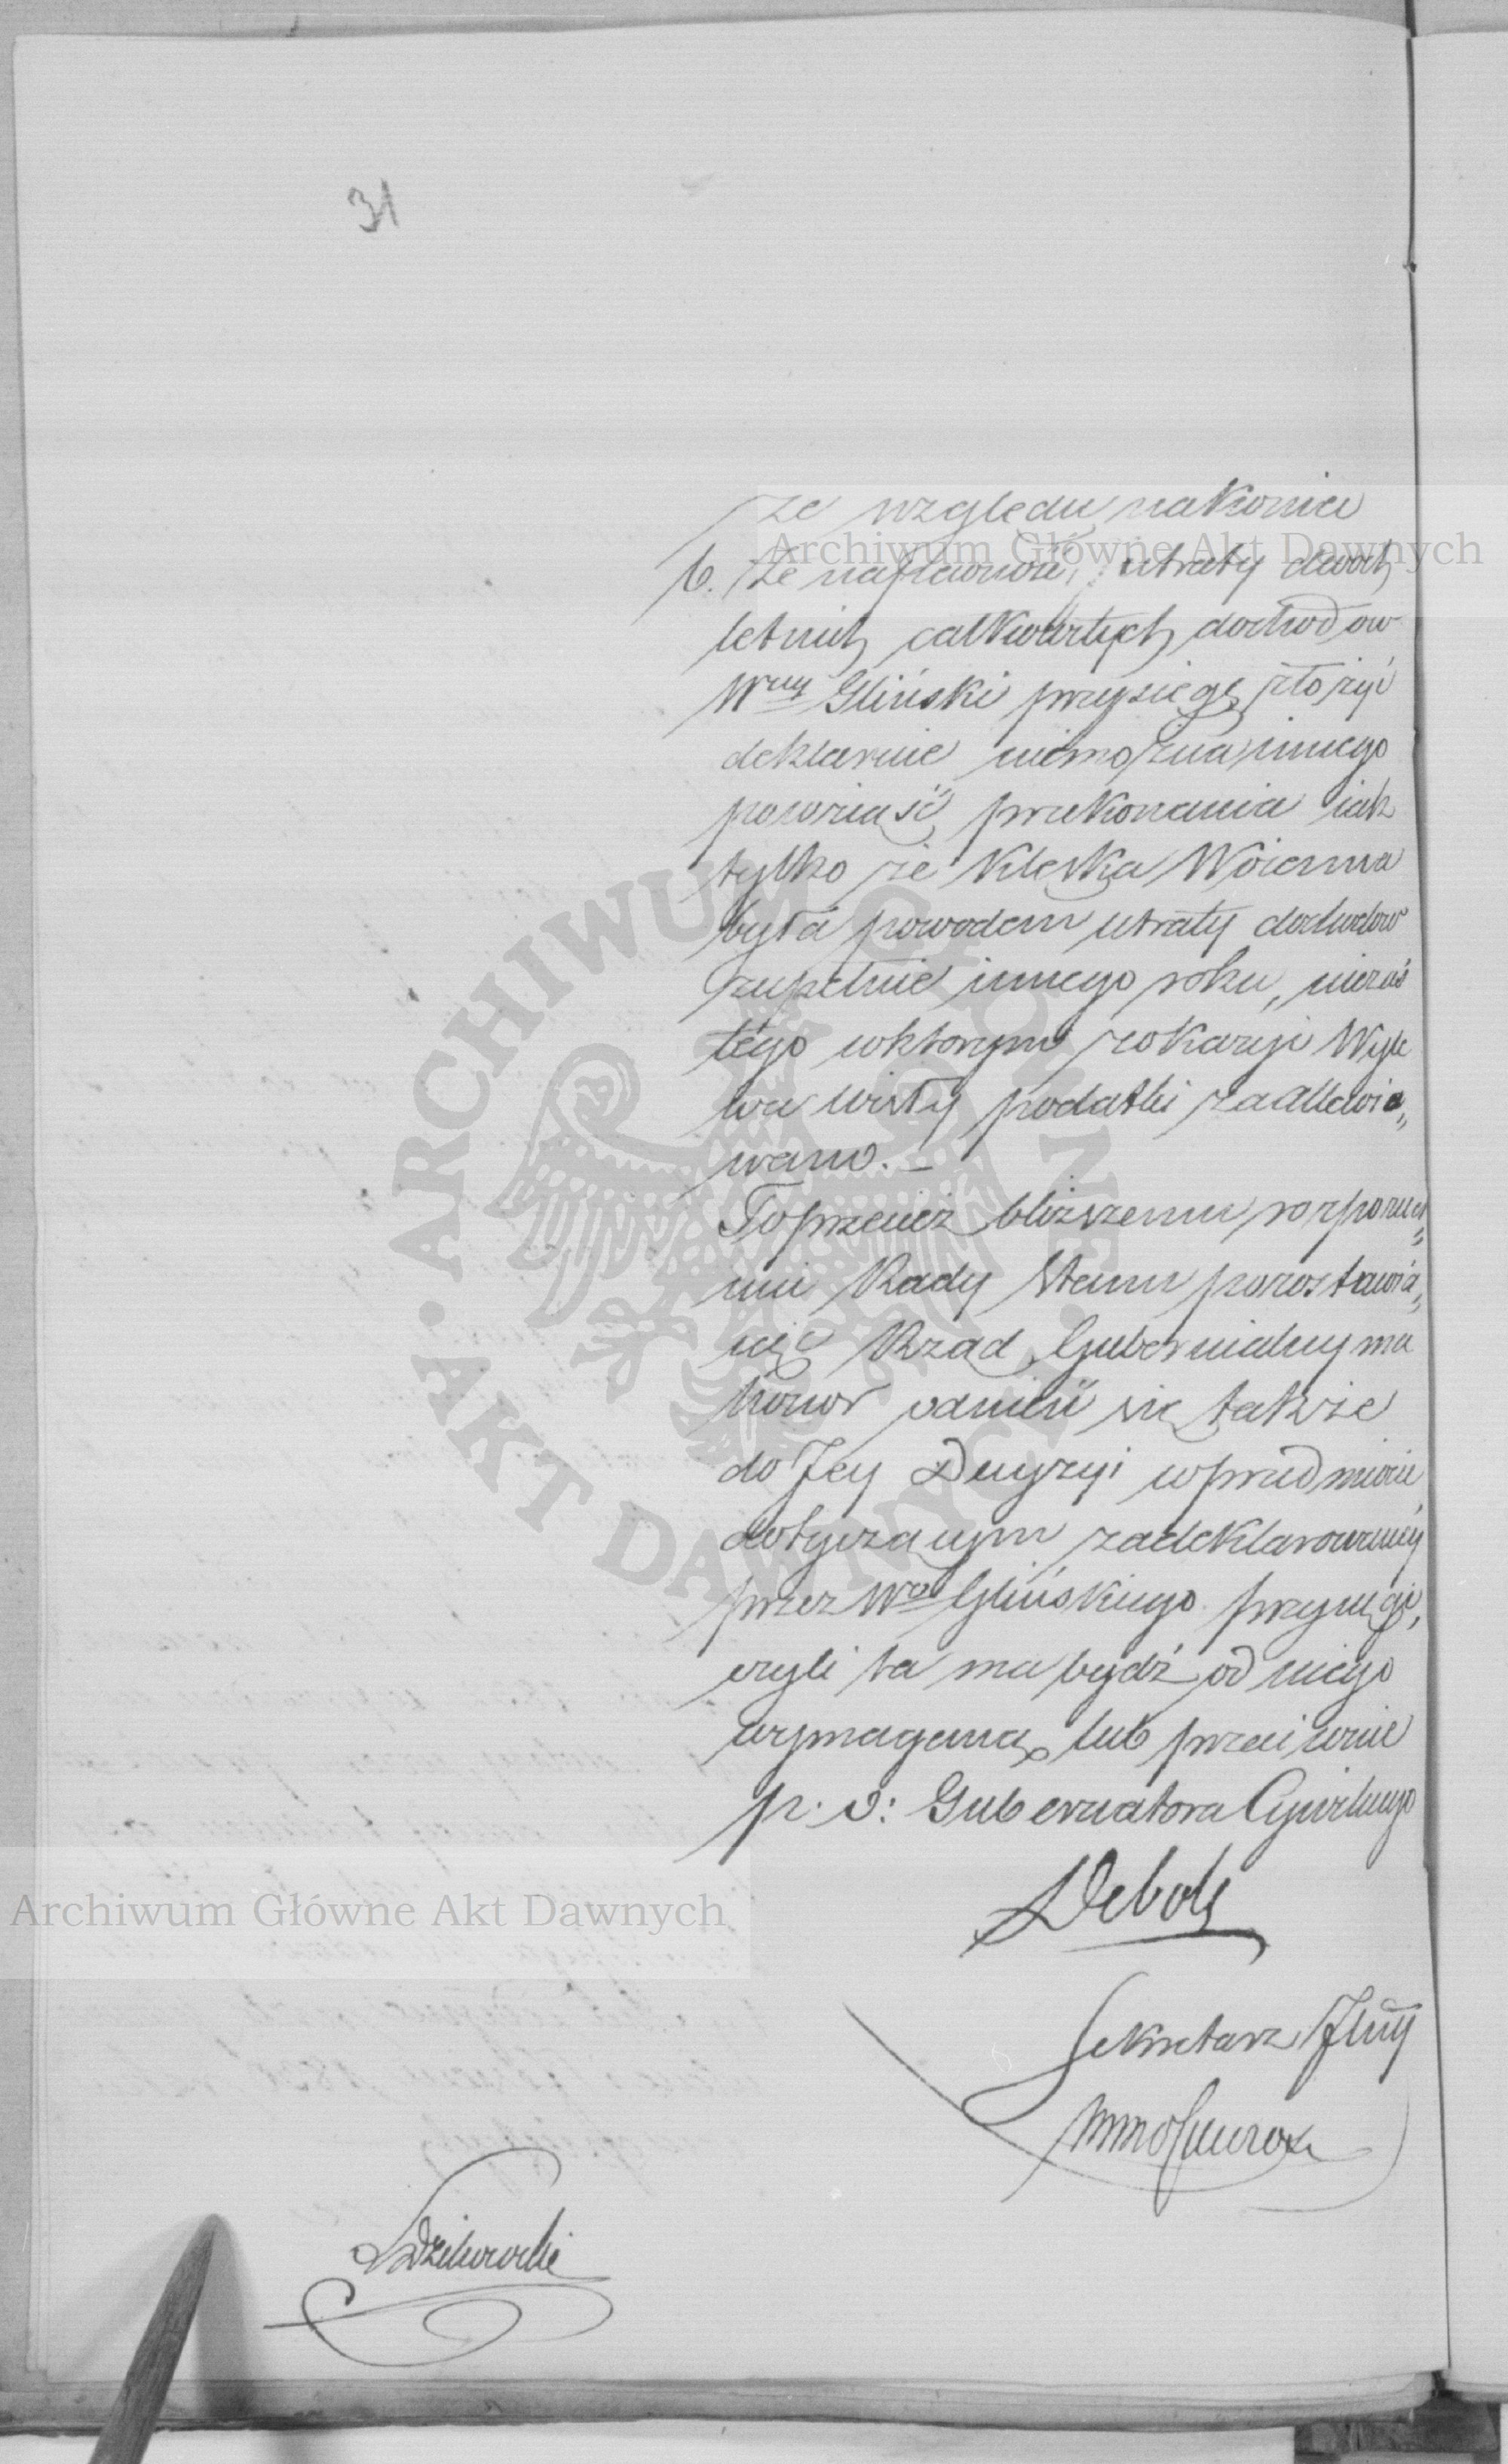 31
ze względu nakoniec
6. Że na pewność utraty dwoch
letnich całkowitych dochodow
Wny Gliński przysięgę złożyć
deklaruie niemożna innego
powziaść przekonania iak
tylko że Klęska Woienna
była powodem utraty dochodow
zupełnie innego roku, niezaś
tego wktorym z okazyi Wyle
wu wisły podatki zaallewio„
wano. –
To przecież bliższemu rozpozna„
niu Rady Stanu pozostawia„
iąc Rząd Gubernialny ma
honor odnieść się także
do Jey Decyzyi w przedmiocie
dotyczącym zadeklarowaney
przez Wo Glińskiego przysięgi,
czyli ta ma bydź od niego
wymagana, lub przeciwnie
p. o: Gubernatora Cywilnego
Deboli
Sekretarz Jlny
Archiwum Główne Akt Dawnych
Archiwum Główne Akt Dawnych
ARCHIWUM GŁÓWNE AKT DAWNYCH